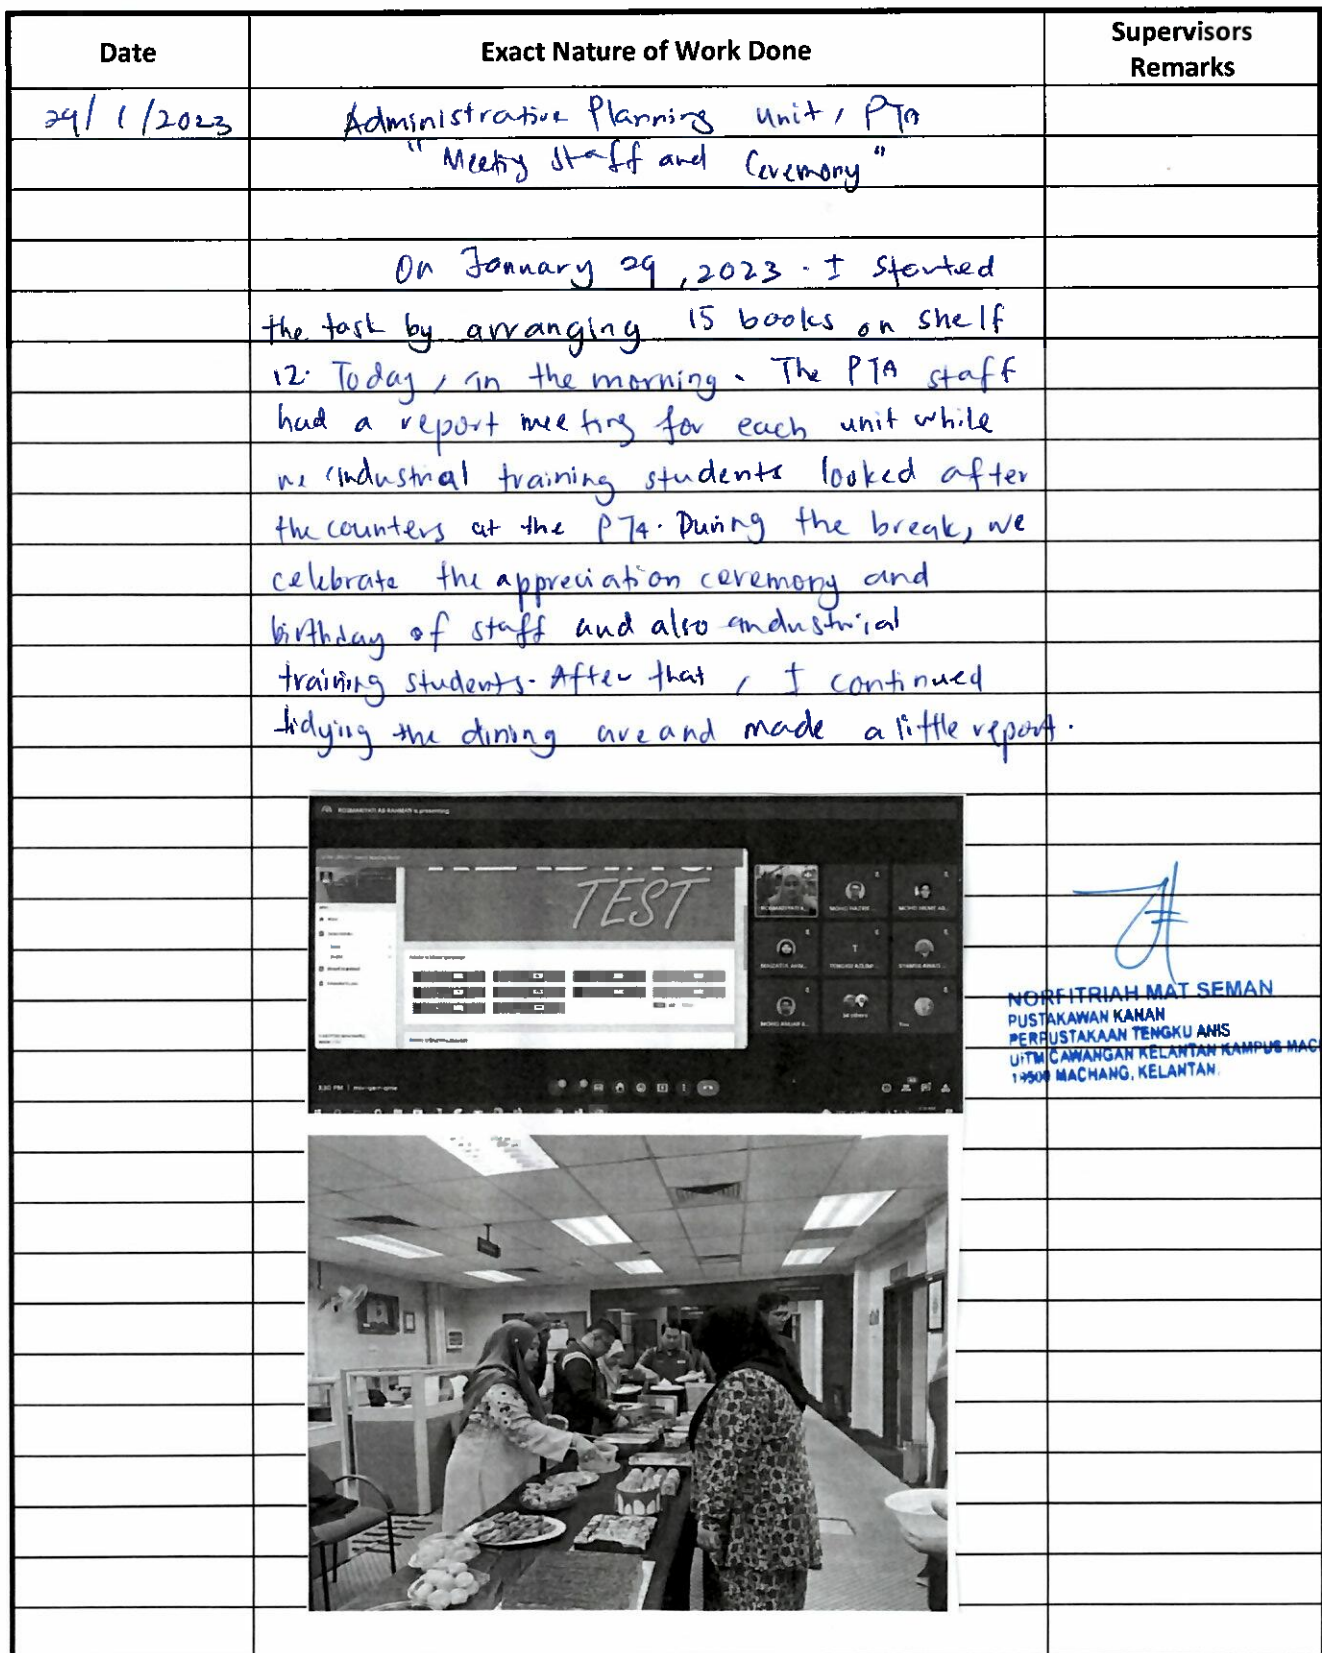 Date
Exact Nature of Work Done
Supervisors
Remarks
29/1/2023
Administrative Planning Unit, PTA
"Meeting Staff and Ceremony"
On January 29, 2023. I started
the task by arranging 15 books on shelf
12. Today, in the morning. The PTA staff
had a report meeting for each unit while
we industrial training students looked after
the counters at the PTA. During the break, we
celebrate the appreciation ceremony and
birthday of staff and also industrial
training students. After that, I continued
tidying the dining are and made a little report.
is presenting
TEST
NORFITRIAH MAT SEMAN
PUSTAKAWAN KANAN
PERPUSTAKAAN TENGKU ANIS
UiTM CAWANGAN KELANTAN KAMPUS MAC
18500 MACHANG, KELANTAN.